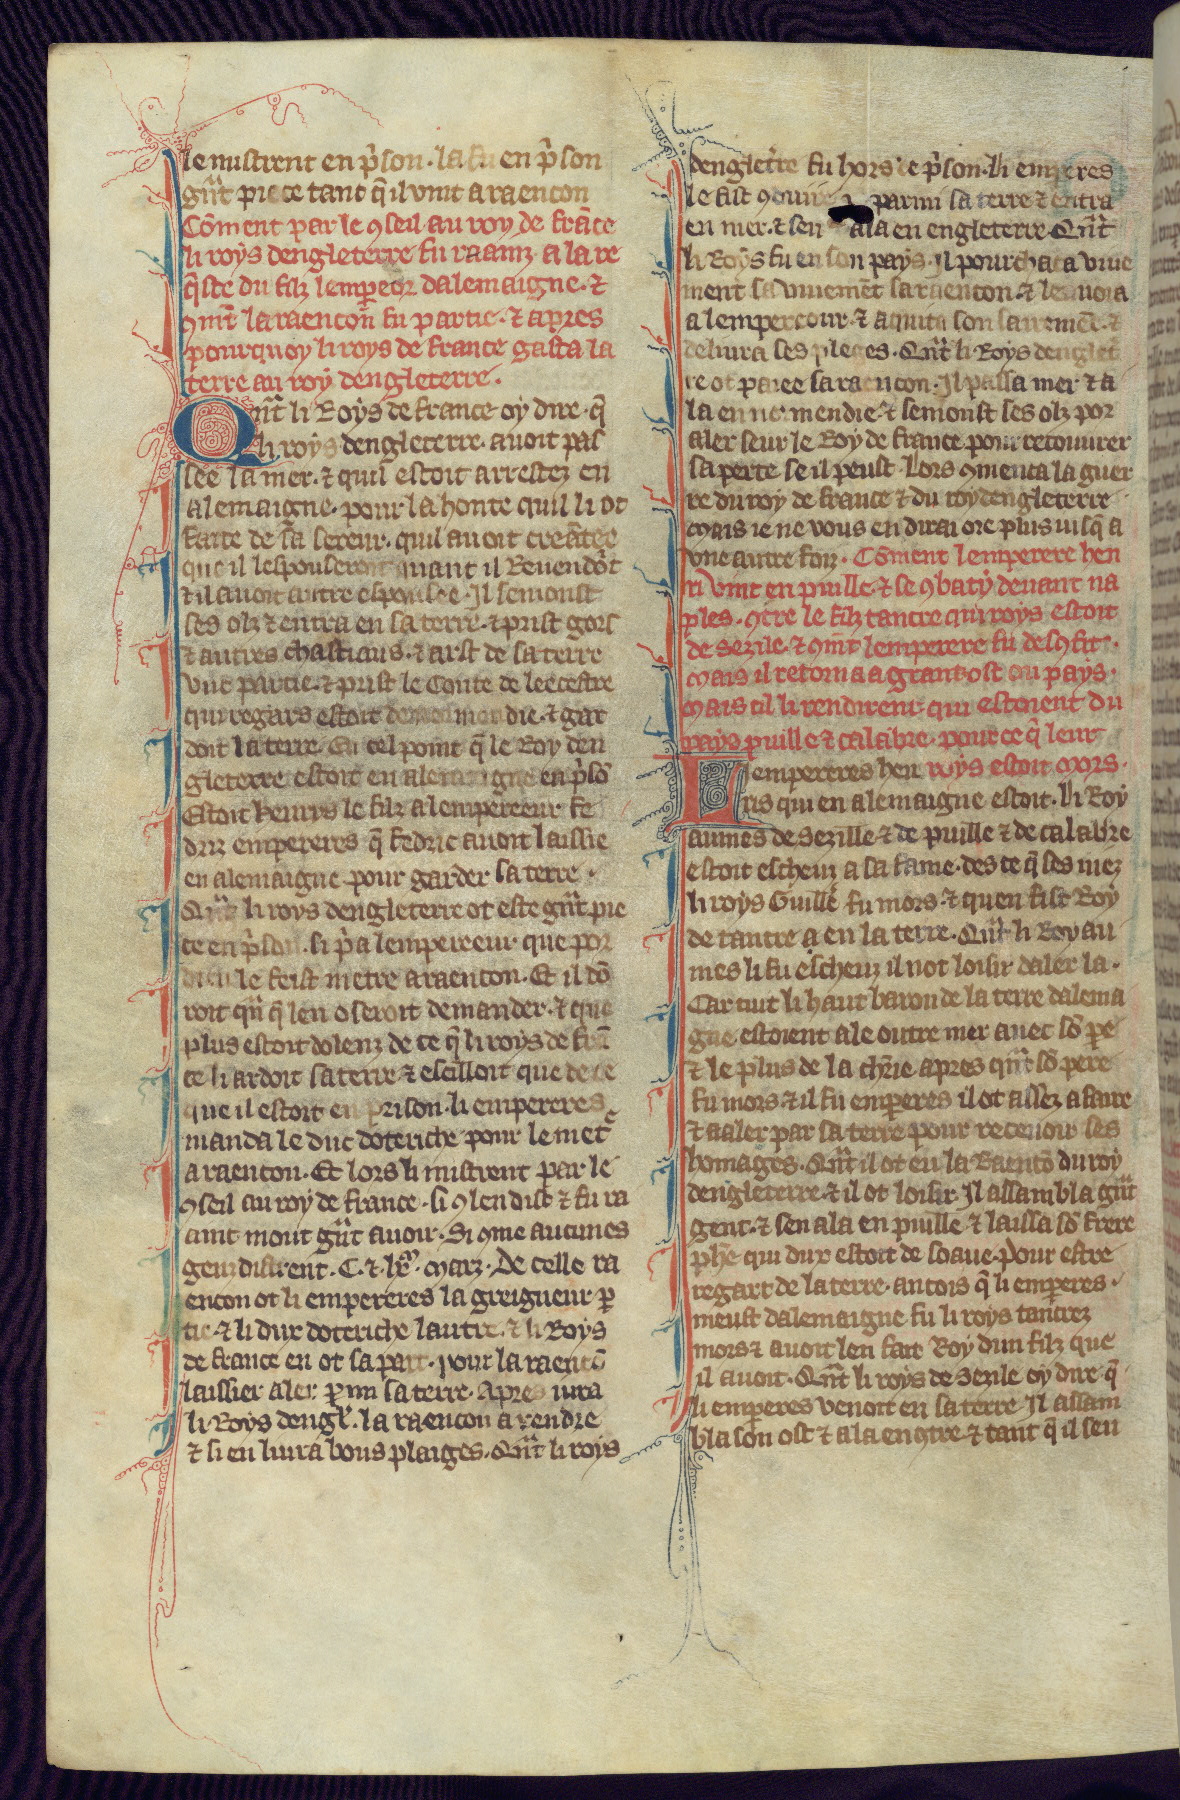 le mistrent en p̃son · la fu en p̃son
gñt piece tant q̃ il vint a raencon
Cõment par le ꝯseil au roy de frãce
li roys dengleterre fu raainz · a la re
q̃ste du filz lempeor dalemaigne · ⁊
ꝯmt̃ la raencon fu partie · ⁊ apres
pourquoy li roys de france gasta la
terre au roy dengleterre ·
Qñt li Roys de france oy dire · q̃
li roys dengleterre · auoit pas
see la mer · ⁊ quil estoit arrestez en
alemaigne · pour la honte quil li ot
faite de sa sereur · quil auoit creãtee
que il lespouseroit quant il Reuendõt
⁊ il auoit autre espousee · Il semonst
ses olz ⁊ entra en sa terre · ⁊ prist gors
⁊ autres chastiaus · ⁊ arst de sa terre
vne partie · ⁊ prist le Conte de leecestre
qui regars estoit de normendie · ⁊ gar
doit la terre · En cel point q̃ le Roy den
gleterre estoit en alemaigne en p̃sõ
Estoit henrys le filz a lempereeur fe
driz empereres q̃ fedric auoit laissie
en alemaigne pour garder sa terre ·
Qñt li roys dengleterre ot este gñt pie
ce en p̃son · si p̃a lempereeur que por
dieu le feist metre a raencon · Et il dõ
roit qñ q̃ len oseroit demander · ⁊ que
plus estoit dolenz de ce q̃ li roys de frã
ce li ardoit sa terre ⁊ escilloit que de ce
que il estoit en prison · li empereres
manda le duc doteriche pour le met̃
a raencon · Et lors li mistrent par le
ꝯseil au roy de france · si ꝯ len dist ⁊ fu ra
aint mout gñt auoir · Si ꝯme aucunes
genz distrent · C · ⁊ · lx · marz · De celle ra
encon ot li empereres la greigneur p̱
tie · ⁊ li dux doteriche lautre · ⁊ li Roys
de france en ot sa part · pour la raencõ
laissier aler p̱mi sa terre · Apres iura
li Roys dengl̃ · la raencon a rendre
⁊ si en liura bons plaiges · Qñt li roys
dengleĩre fu hors de p̃son · li emperes
le fist ꝯduire parmi sa terre ⁊ entra
en mer · ⁊ sen ala en engleterre · Qñt
li Roys fu en son pays · Il pourchaca viue
ment sa viuemẽt sa raencon · ⁊ lenuoia
a lempereour · ⁊ aquita son sairemẽt · ⁊
deliura ses pleges · Qñt li Roys denglet̃
re ot paiee sa raencon · Il passa mer ⁊ a
la en normendie ⁊ semonst ses olz por
aler seur le Roy de france pour recouurer
sa perte se il peust · Lors ꝯmenca la guer
re du roy de france ⁊ du roy dengleterre
Mais ie ne vous en dirai ore plus iusq̃ a
vne autre foiz · Cõment lemperere hen
ri vint en puille · ⁊ se ꝯbaty deuant na
ples · ꝯtre le filz tancre qui roys estoit
de sezile · ⁊ ꝯmt̃ lemperere fu desꝯfit ·
Mais il retorna a grant ost ou pays ·
Mais cil li rendirent qui estoient du
pays puille ⁊ calabre · pour ce q̃ leur
Lempereres hen roys estoit mors ·
ris qui en alemaigne estoit · Li Roy
aumes de sezille ⁊ de puille ⁊ de calabre
estoit escheuz a sa fame · des ce q̃ ses niez
li roys Guille fu mors · ⁊ quen fist Roy
de tancre a en la terre · Qñt li Royau
mes li fu escheuz il not loisir daler la ·
Car tuit li haut baron de la terre dalema
gne estoient ale outre mer auec sõ pe
⁊ le plus de la chr̃ie apres qñt sõ pere
fu mors · ⁊ il fu emperes il ot assez a faire
⁊ a aler par sa terre pour receuoir ses
homages · Qñt il ot eu la Raencõ du roy
dengleterre · ⁊ il ot loisir · Il assambla gñt
gent · ⁊ sen ala en puille · ⁊ laissa sõ frere
phe qui dux estoit de soaue · Pour estre
regart de la terre · ancois q̃ li emperes ·
meust dalemaigne fu li roys tancrez
mors · ⁊ auoit len fait Roy dun filz que
il auoit · Qñt li roys de Sezile oy dire · q̃
li emperes venoit en sa terre Il assam
bla son ost ⁊ ala encꝯtre · ⁊ tant q̃ il seu